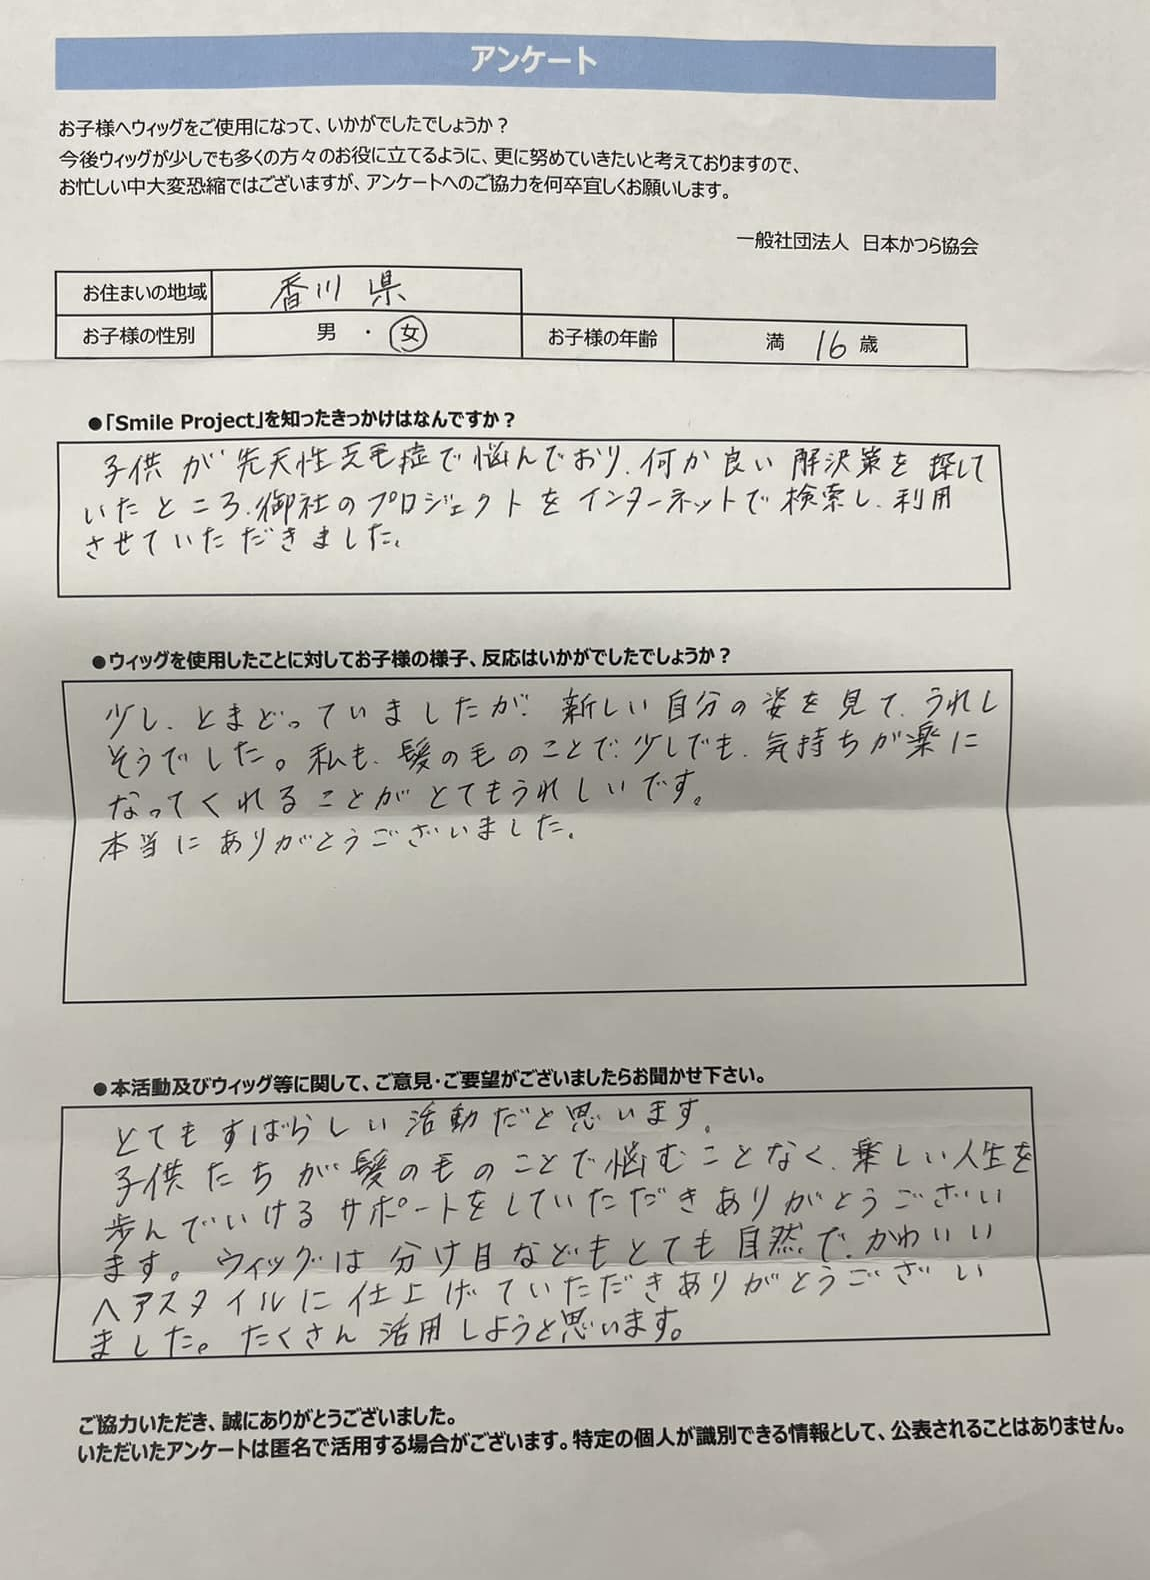 アンケート
お子様へウィッグをご使用になって、いかがでしたでしょうか？
今後ウィッグが少しでも多くの方々のお役に立てるように、更に努めていきたいと考えておりますので、
お忙しい中大変恐縮ではございますが、アンケートへのご協力を何卒宜しくお願いします。
一般社団法人 日本かつら協会
お住まいの地域 香川県
お子様の性別 男・女 お子様の年齢 満 16 歳
●「Smile Project」を知ったきっかけはなんですか？
子供が先天性乏毛症で悩んでおり、何か良い解決策を探して
いたところ、御社のプロジェクトをインターネットで検索し、利用
させていただきました。
●ウィッグを使用したことに対してお子様の様子、反応はいかがでしたでしょうか？
少し、とまどっていましたが、新しい自分の姿を見て、うれし
そうでした。私も、髪の毛のことで、少しでも、気持ちが楽に
なってくれることがとてもうれしいです。
本当にありがとうございました。
●本活動及びウィッグ等に関して、ご意見・ご要望がございましたらお聞かせ下さい。
とてもすばらしい活動だと思います。
子供たちが髪の毛のことで悩むことなく、楽しい人生を
歩んでいけるサポートをしていただきありがとうござい
ます。ウィッグは分け目などもとても自然で、かわいい
ヘアスタイルに仕上げていただきありがとうござい
ました。たくさん活用しようと思います。
ご協力いただき、誠にありがとうございました。
いただいたアンケートは匿名で活用する場合がございます。特定の個人が識別できる情報として、公表されることはありません。